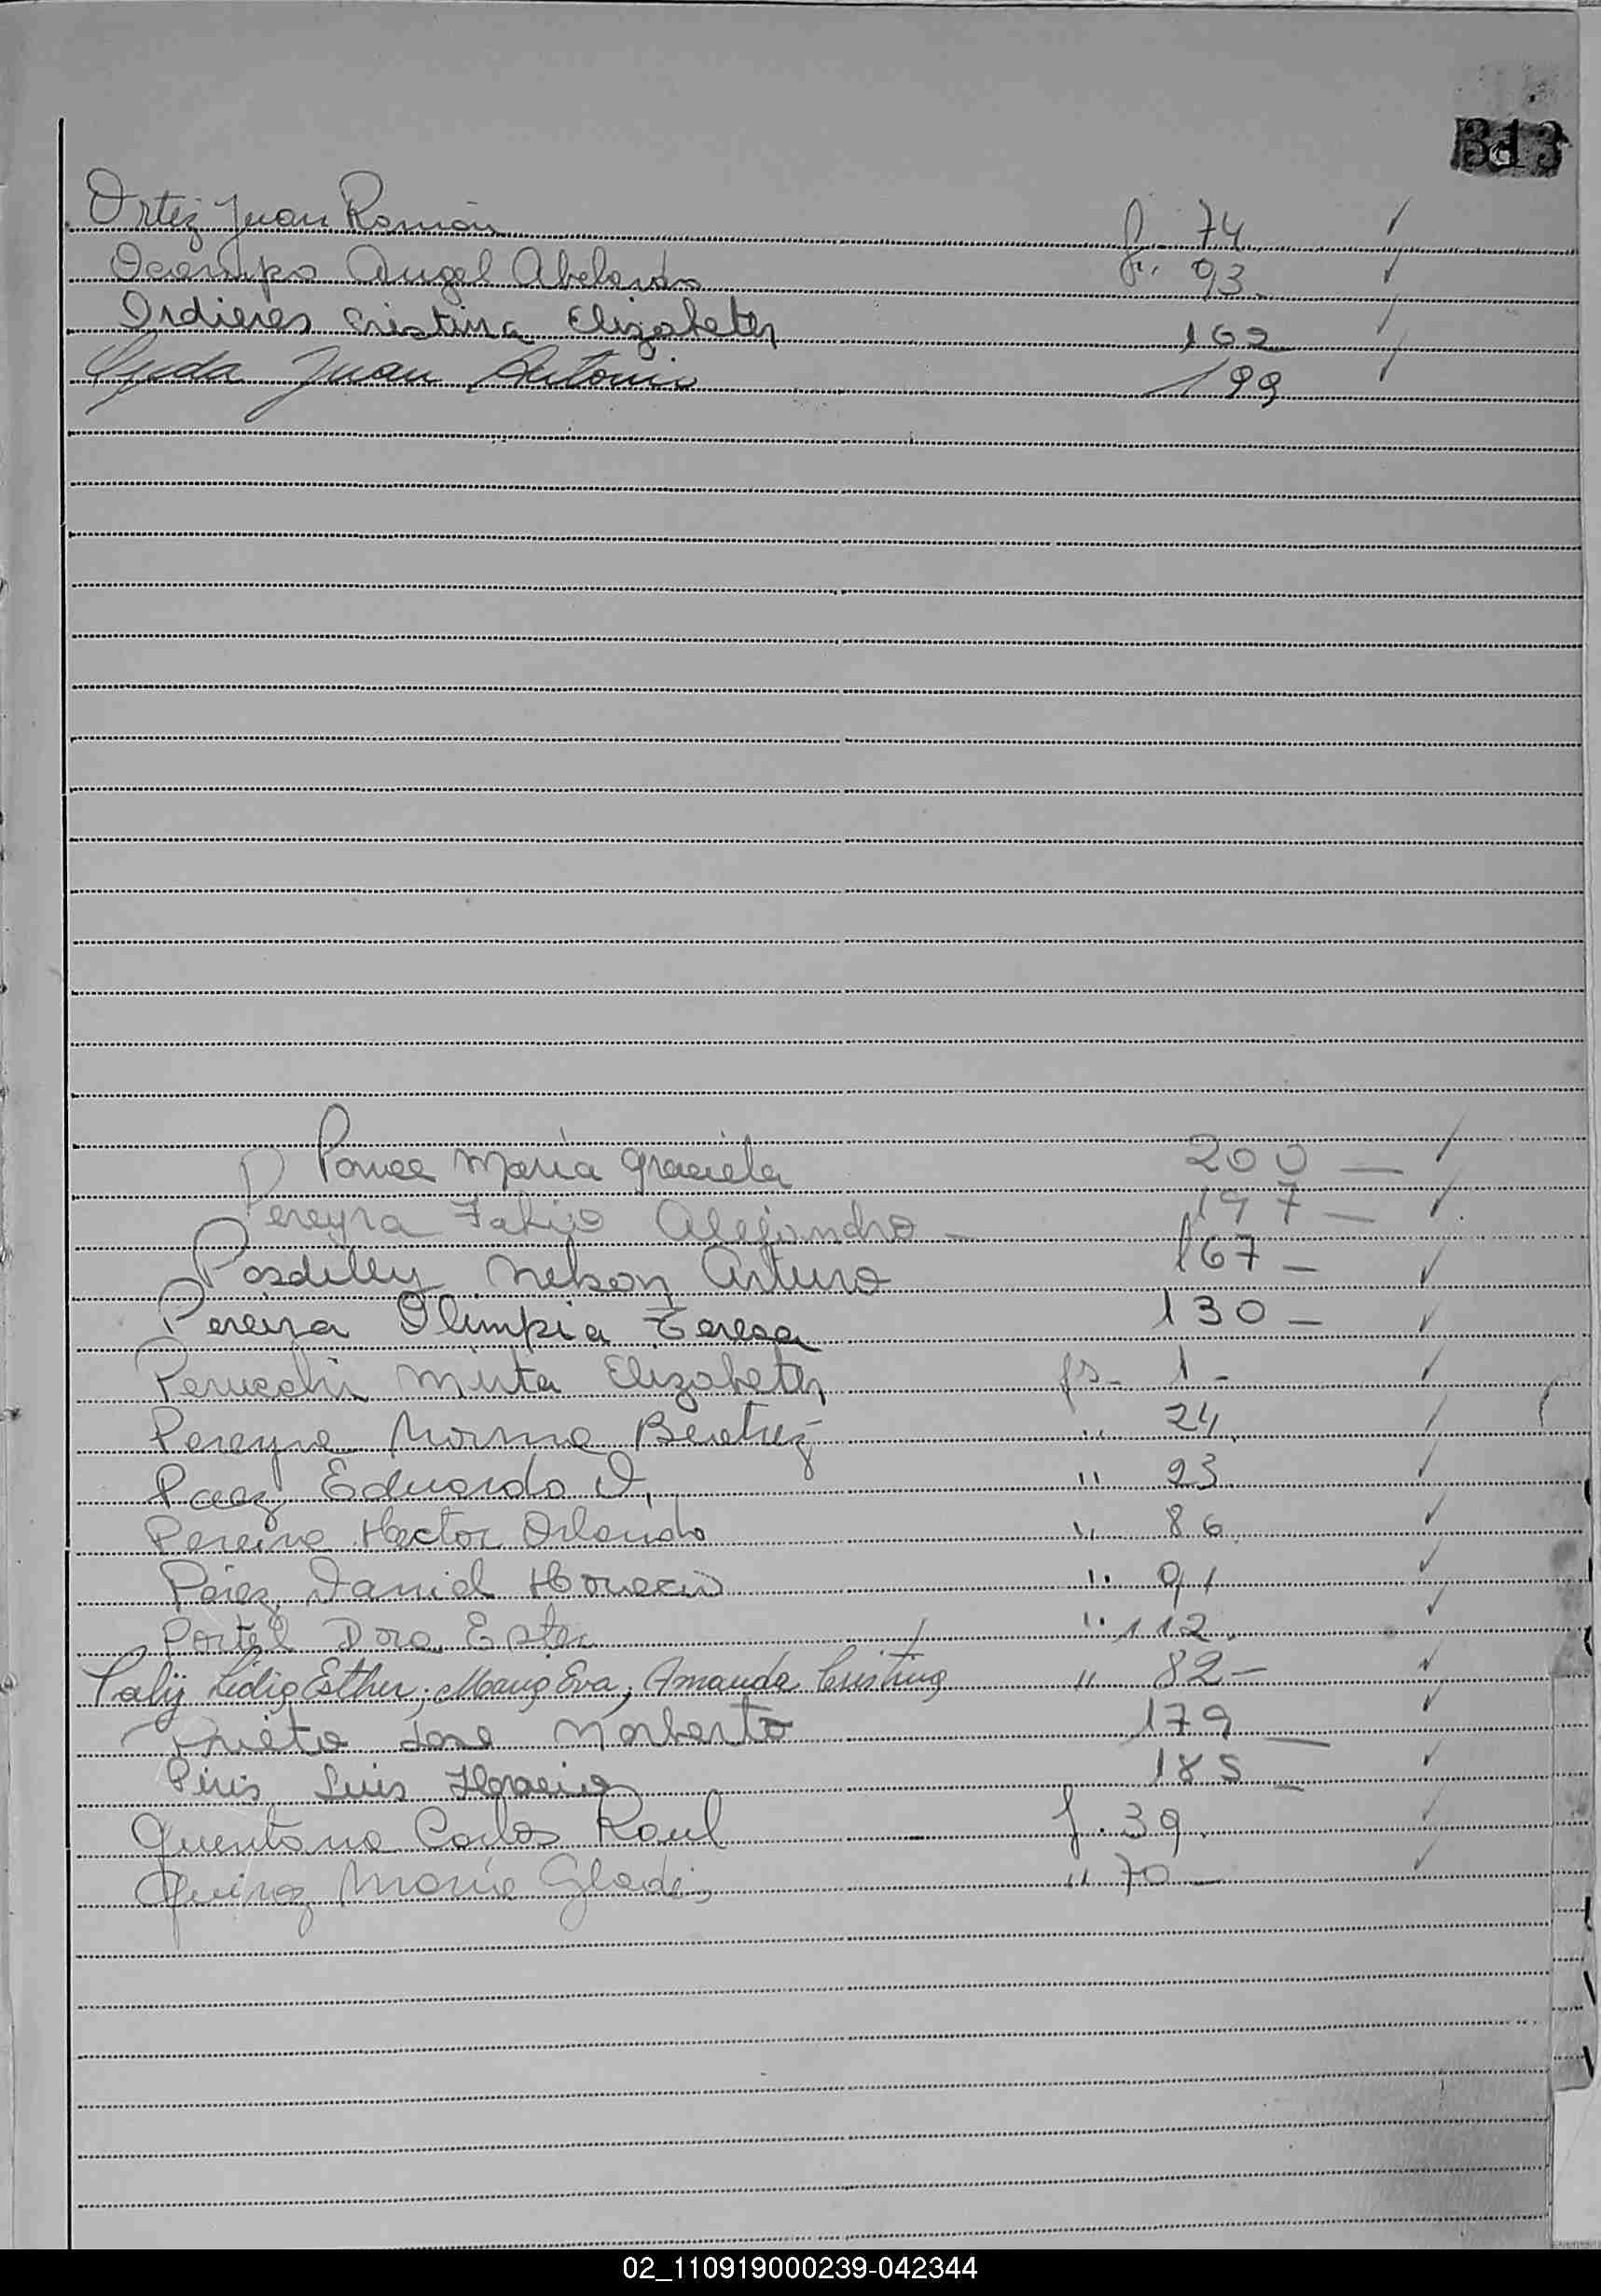 313
Ortiz Juan Ramón f. 74 ✓
Ocampo Angel Abelardo f. 93. ✓
Ordieres Cristina Elizabeth 162 ✓
Ojeda Juan Antonio 199 ✓
Ponce María Graciela 200 — ✓
Pereyra Fabio Alejandro — 197 — ✓
Posdeley Nelson Arturo 167 — ✓
Pereira Olimpia Teresa 130 — ✓
Perucchi Mirta Elizabeth fs. 1 - ✓
Pereyra Norma Beatriz " 24. ✓
Paez Eduardo O. " 23. ✓
Pereira Hector Orlando " 86. ✓
Pérez Daniel Horacio " 91 ✓
Portel Dora Ester " 112. ✓
Lidia Esther; Eva; Amanda Cristina " 82 - ✓
Prieto José Norberto 179 — ✓
Piris Luis Horacio 185 — ✓
Quintana Carlos Raul f. 39. ✓
Quiroz María Gladis " 70 — ✓
02_110919000239-042344